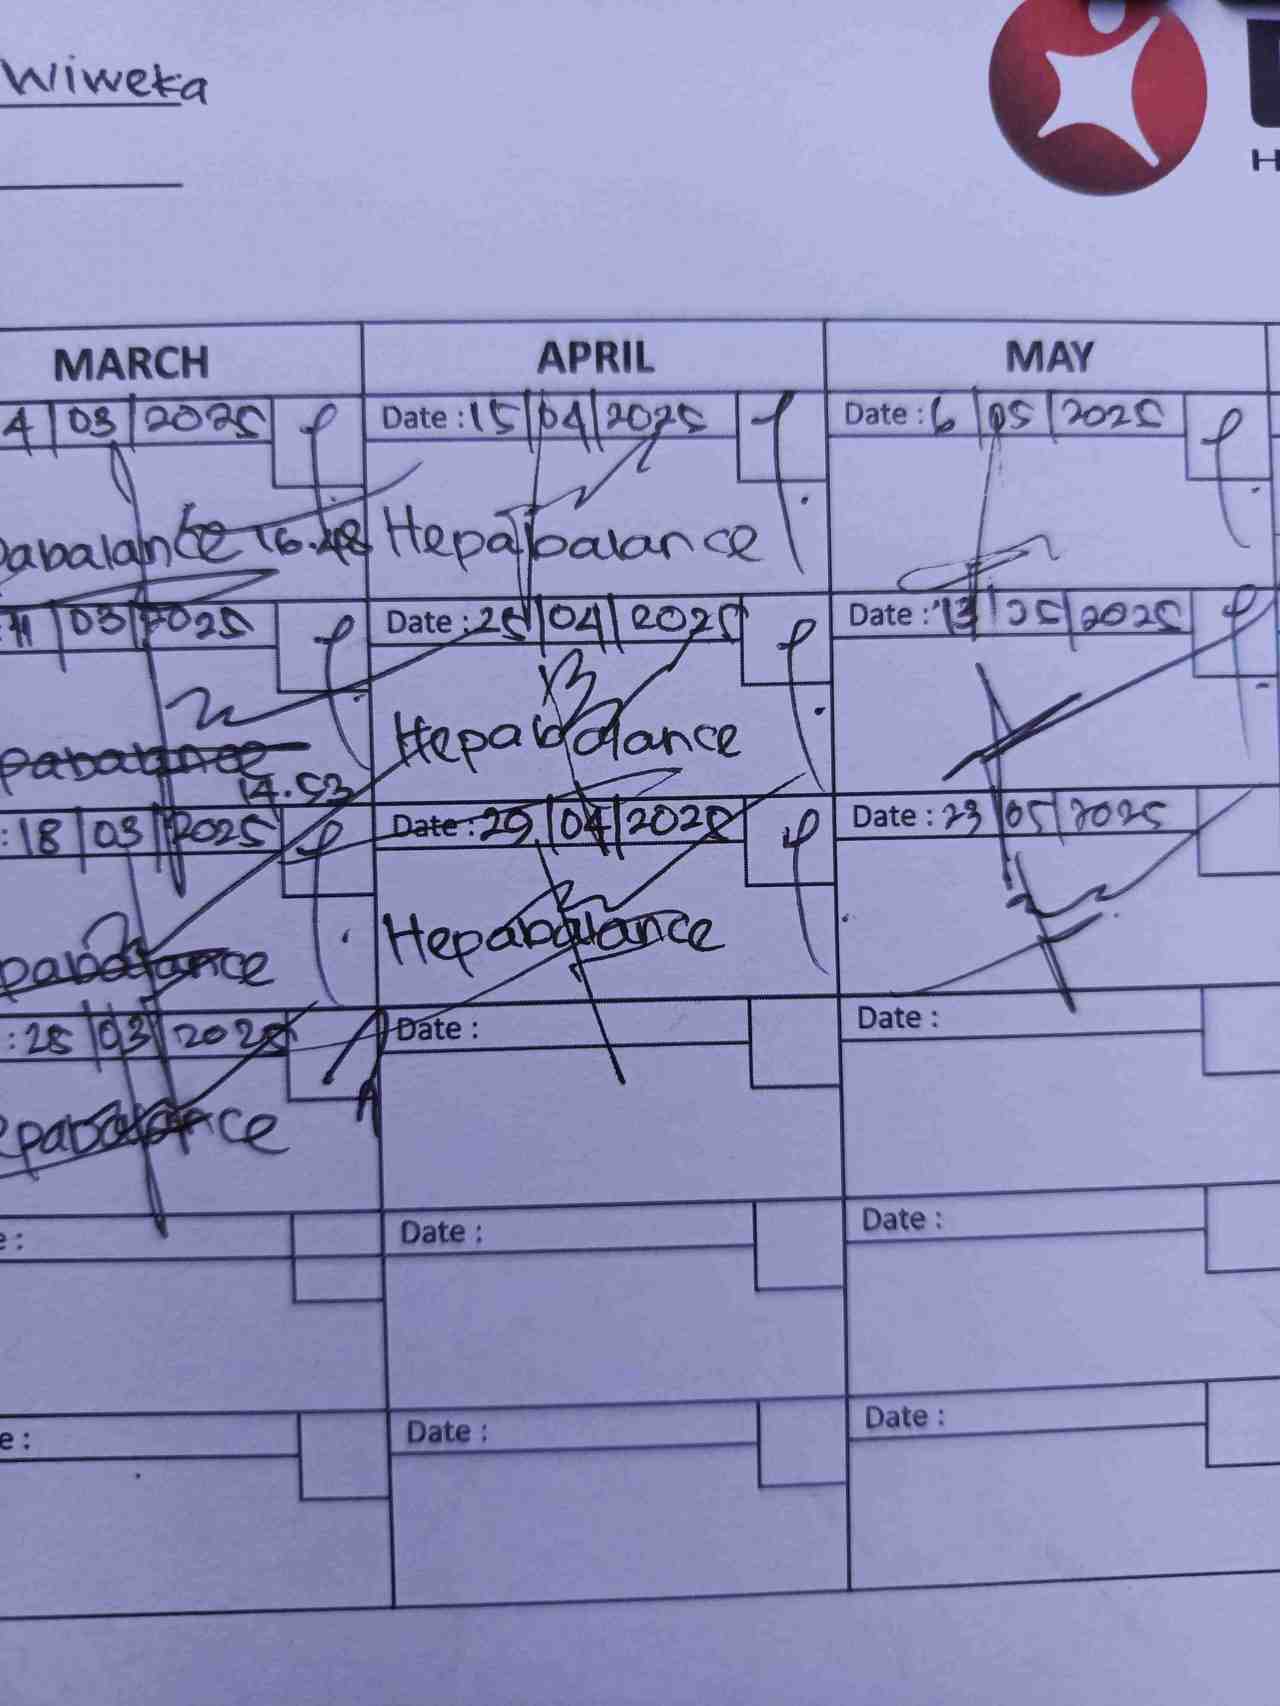 Wiweka
H
MARCH APRIL MAY
4/03/2025 Date : 15/04/2025 Date : 6/05/2025
pabalance 16.48 Hepabalance
11/03/2025 Date : 25/04/2025 Date : 13/05/2025
pabalance Hepabalance
14.53
: 18/03/2025 Date : 29/04/2025 Date : 23/05/2025
pabalance Hepabalance
: 25/03/2025 Date : Date :
epabalance
e : Date : Date :
e : Date : Date :